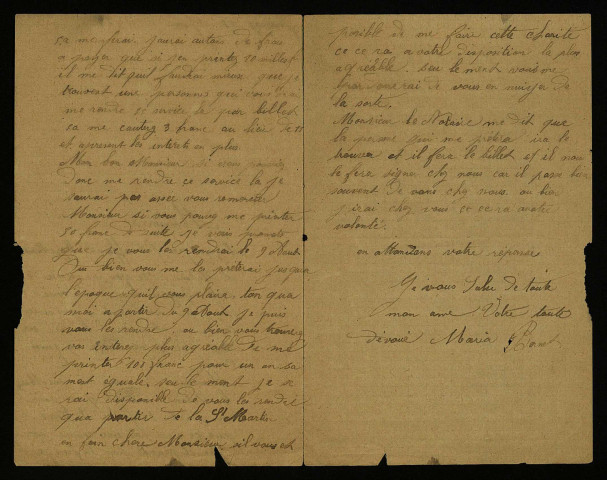 ça me ferai j'aurai autans de frai
a payer que si j'en prentez 10 millest
il me dit quil faudrai mieux que je
trouvent une personne qui voudrai
me rendre se service la par billet
ça me coutez 3 franc au lieu de 11
et apresent les interet en plus.
Mon bon Monsieur si vous pouvez
Donc me rendre ce service la je
saurai pas assez vous remercier
Monsieur si vous pouvez me prêter
50 franc de suite je vous promets
que je vous les rendrai le 9 Aout
Ou bien vous me les preterai jusqua
l'epoque quil vous plaira, tan qua
moi a partir du 9 Aout je puis
vous les rendre ou bien vous
vos interes plus agréable De me
100 franc pour un an sa
mest égale, seule ment je se
rai disponible de vous les rendre
qua partir de la St Martin
en fain chere Monsieur sil vous et
posible de me faire cette charité
ce ce ra a votre disposition la plus
agréable. seule ment vous me
de vous en misez de
la sorte.
Monsieur le Notaire me dit que
la persone qui me prêtra ira le
trouver et il fera le billet et il nous
le fera signer chez nous car il passe bien
souvent de vans chez nous ou bien
j'irai chez vous se ce ra a votre
volonté.
en Atandans votre réponse
Je vous Salue de toute
mon ame Votre toute
dévoué Maria